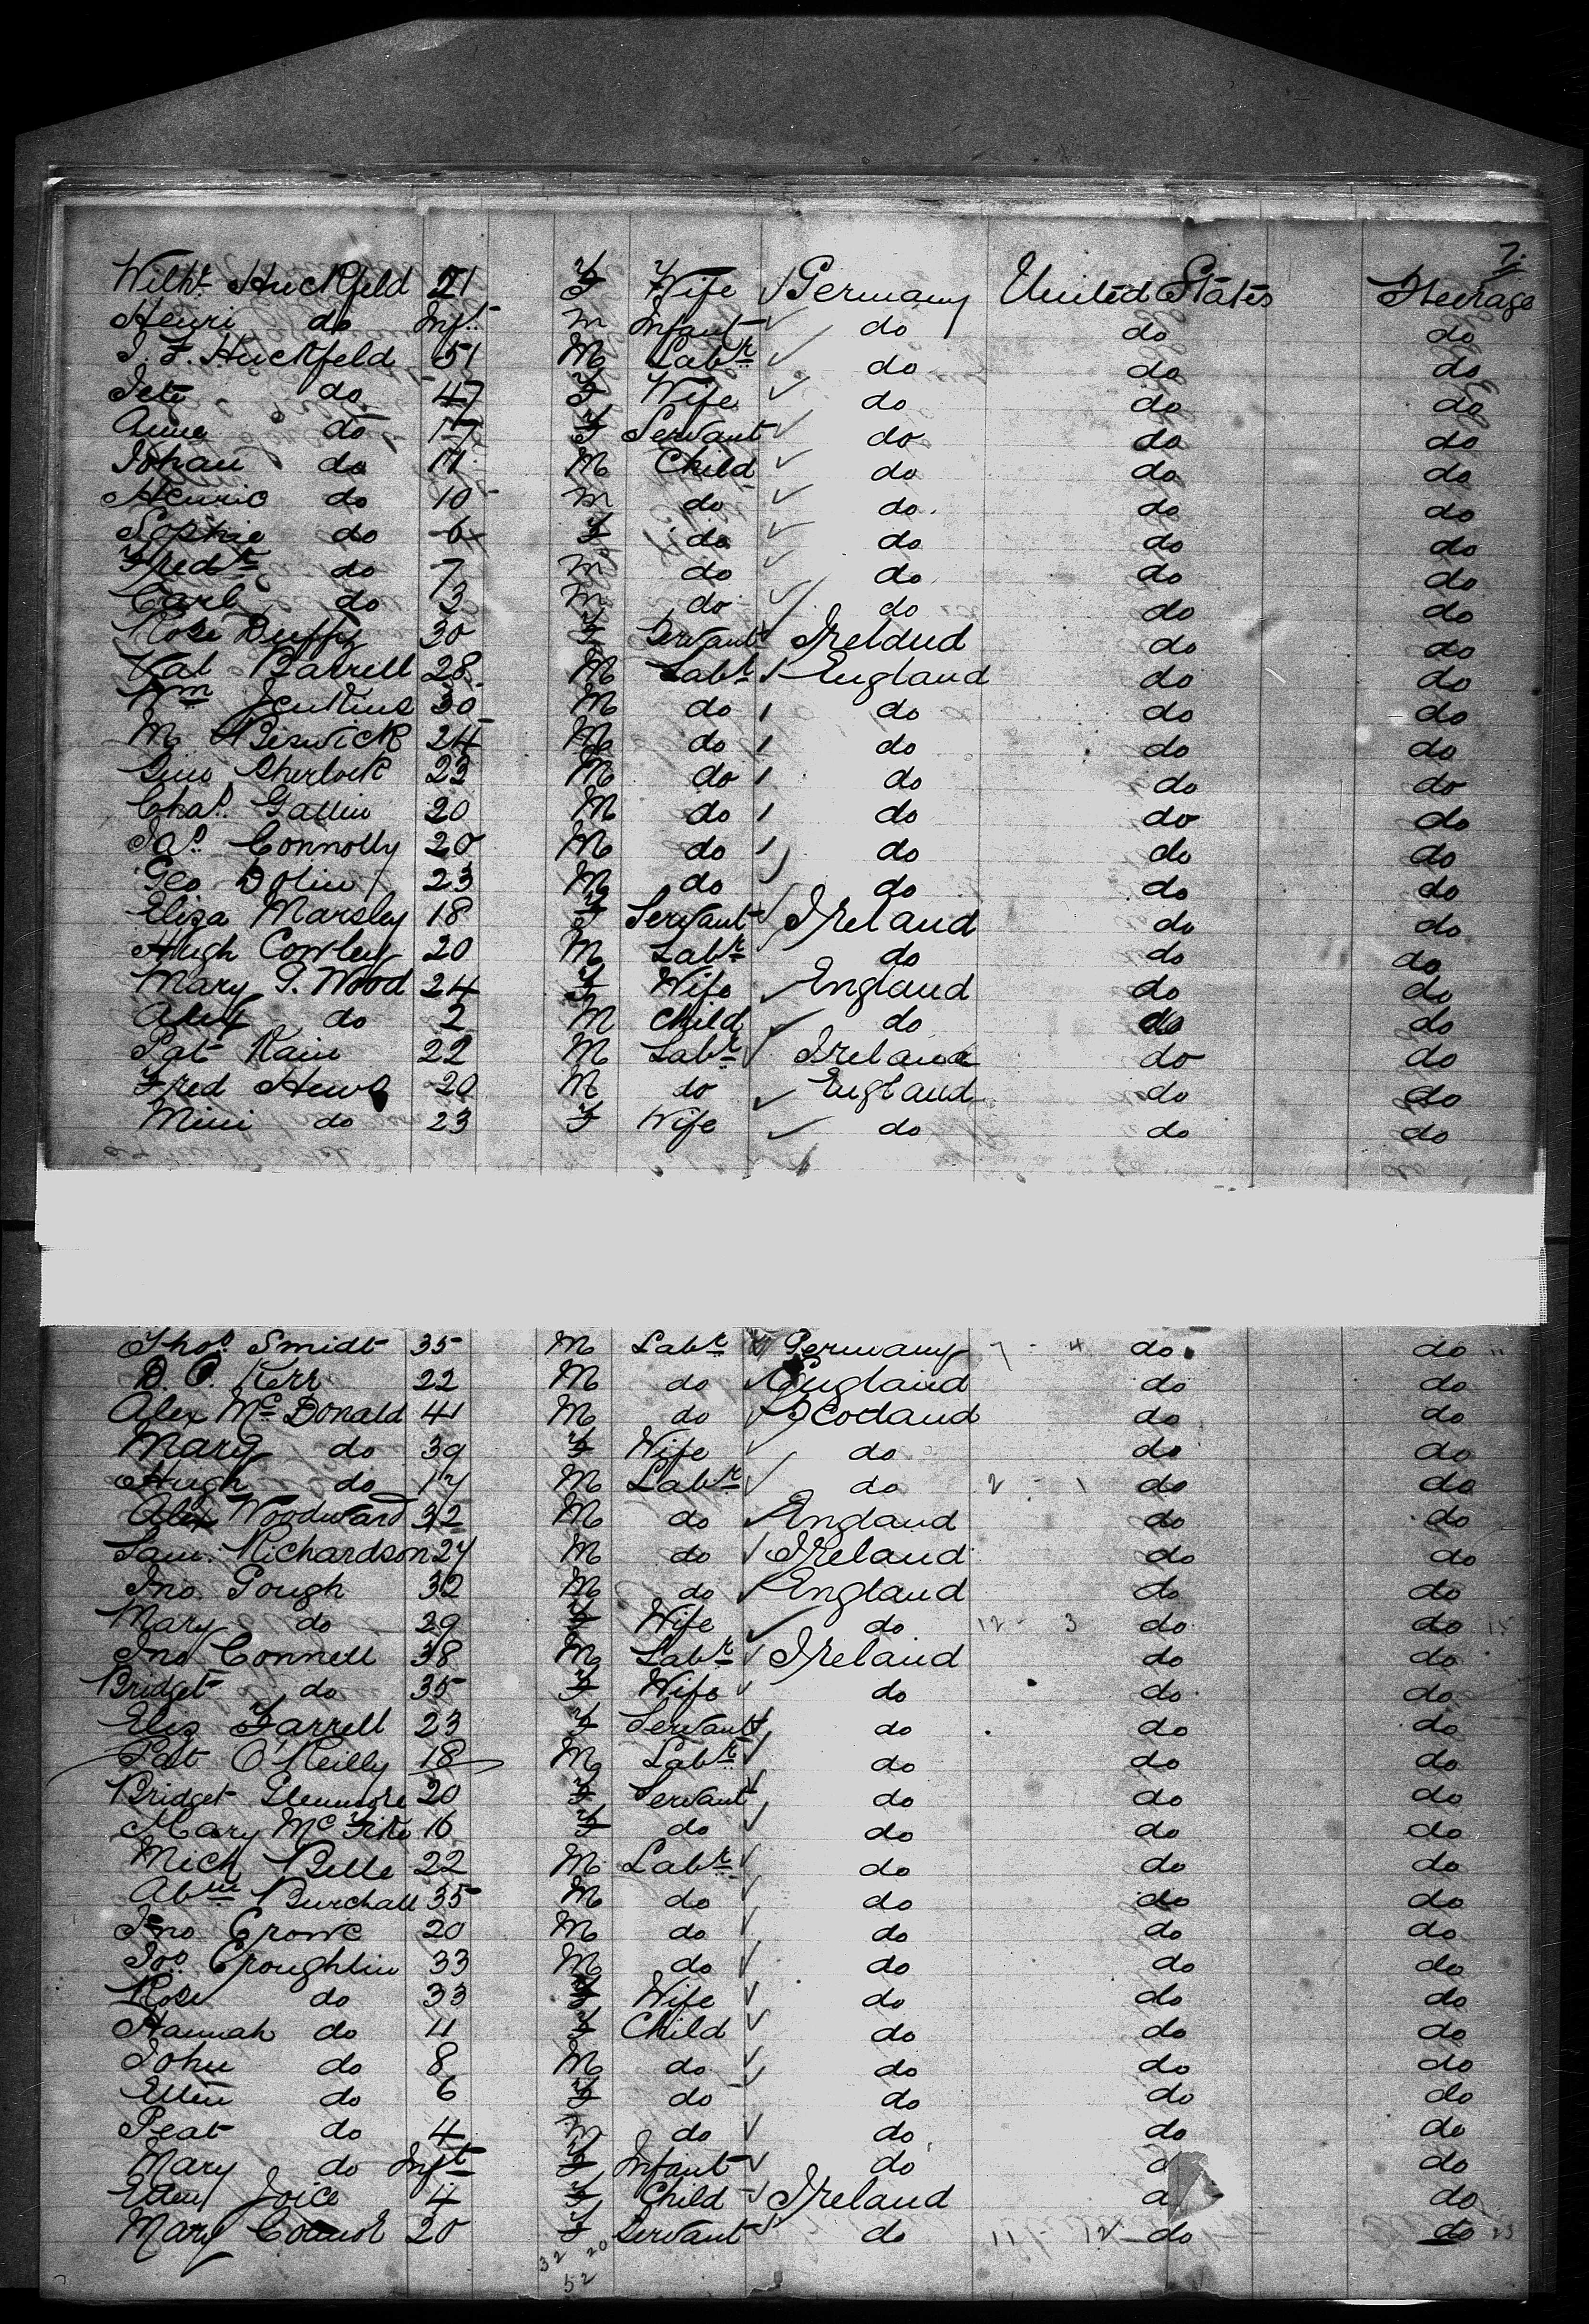 7.
Wilh. Huckfeld 21 F Wife Germany United States Steerage
Henri do Inft. M Infant do do do
J. F. Huckfeld 51 M Labr do do do
Jete do 47 F Wife do do do
Anna do 17 F Servant do do do
Johan do 11 M Child do do do
Henric do 10 M do do do do
Sophie do 6 F do do do do
Fredk do 7 M do do do do
Carl do 3 M do do do do
Rose Duffy 30 F Servant Ireland do do
Val Barrell 28 M Labr England do do
Wm Jenkins 30 M do do do do
M Beswick 24 M do do do do
Sherlock 23 M do do do do
Chas. Gallin 20 M do do do do
Jas. Connolly 20 M do do do do
Geo Dolin 23 M do do do do
Eliza Marsley 18 F Servant Ireland do do
Hugh Cowley 20 M Labr do do do
Mary G. Wood 24 F Wife England do do
Alex do 2 M Child do do do
Pat Kain 22 M Labr Ireland do do
Fred Hews 20 M do England do do
Mini do 23 F Wife do do do
Thos. Smidt 35 M Labr Germany 7 - 4 do do 11
D. O. Kerr 22 M do England do do
Alex McDonald 41 M do Scotland do do
Mary do 39 F Wife do do do
Hugh do 17 M Labr do 2 - 1 do do
Alex Woodward 32 M do England do do
Sam. Richardson 24 M do Ireland do do
Jno. Gough 32 M do England do do
Mary do 29 F Wife do 12 - 3 do do 15
Jno Connell 38 M Labr Ireland do do
Bridget do 35 F Wife do do do
Eliz Farrell 23 F Servant do do do
Pat O'Reilly 18 M Labr do do do
Bridget Glenmore 20 F Servant do do do
Mary McFike 16 F do do do do
Mich Belle 22 M Labr do do do
Abm Burchall 35 M do do do do
Jno. Crowe 20 M do do do do
Jos. Croughlin 33 M do do do do
Rose do 33 F Wife do do do
Hannah do 11 F Child do do do
John do 8 M do do do do
Ellen do 6 F do do do do
Peat do 4 M do do do do
Mary do Inft F Infant do do
Ellen Joice 4 F Child Ireland do
Mary Connor 20 F Servant do 11 - 12 do do 23
32 20
52